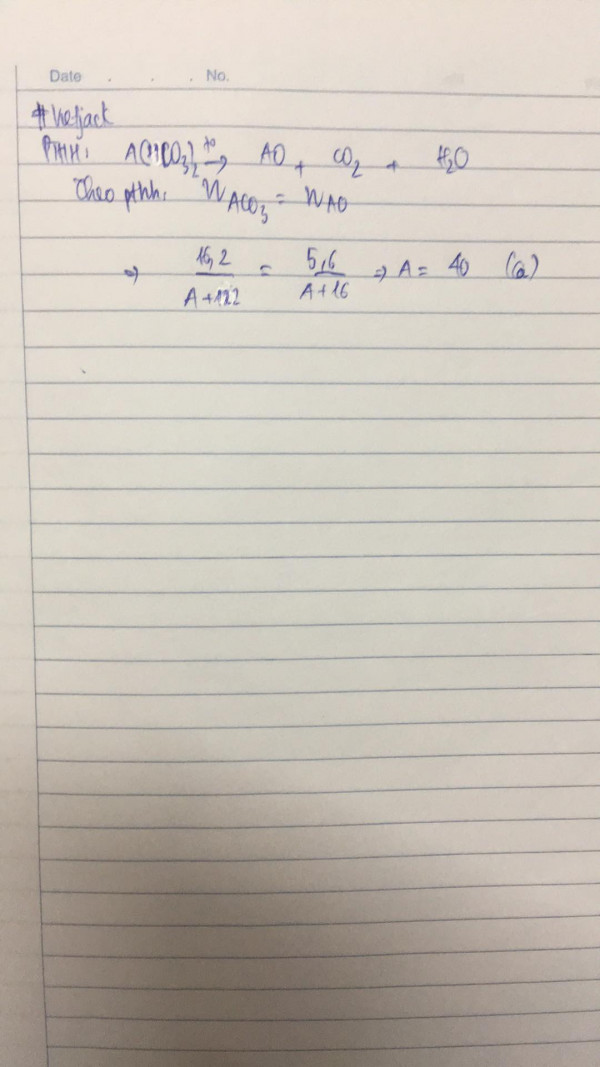 Date . . . No.
PTHH: A(HCO₃)₂ →(t°) AO + CO₂ + H₂O
Theo pthh: n ACO₃ = n AO
=> 16,2/(A+122) = 5,6/(A+16) => A = 40 (Ca)